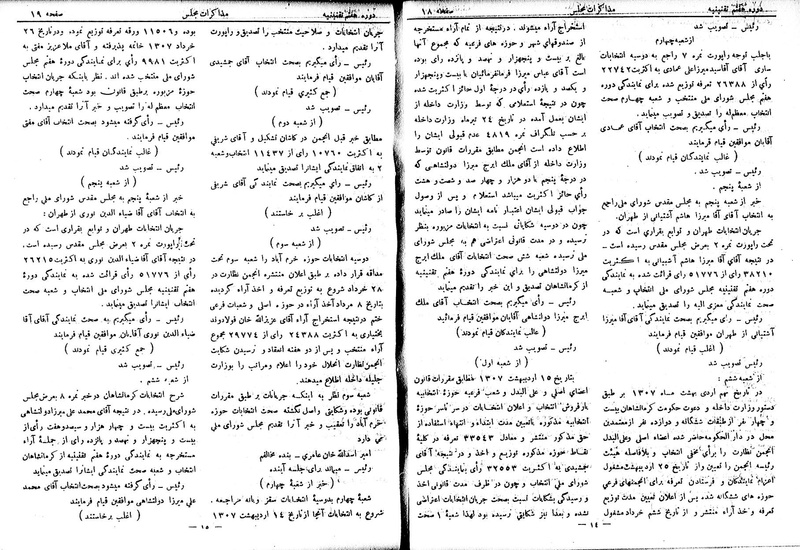 دوره هفتم تقنینیه
مذاکرات مجلس
صفحه ۱۸
رئیس ـ تصویب شد
ازشعبه چهارم
باجلب توجه براپورت نمره ۷ راجع به دوسیه انتخابات
ساری آقای آقاسیدمیرزا علی عمادی به اکثریت ۲۲۷۴۲
رأی از ۲۶۳۸۸ تعرفه توزیع شده برای نمایندگی دوره
هفتم مجلس شورای ملی منتخب و شعبه چهارم صحت
انتخاب معظم‌له را تصدیق و تصویب مینماید.
رئیس ـ رأی میگیریم بصحت انتخاب آقای عمادی
آقایان موافقین قیام فرمایند
( غالب نمایندگان قیام نمودند )
رئیس ـ تصویب شد .
از شعبهٔ پنجم .
خبر از شعبهٔ پنجم به مجلس مقدس شورای ملی راجع
به انتخاب آقای آقا میرزا هاشم آشتیانی از طهران:
جریان انتخابات طهران و توابع بقراری است که در
تحت راپورت نمره ۲ بعرض مجلس مقدس رسیده است ـ
در نتیجه آقای آقا میرزا هاشم آشتیانی به اکثریت
۳۸۲۱۰ رأی از ۵۱۷۷۶ رأی قرائت شده به نمایندگی
دوره هفتم تقنینیه مجلس شورای ملی انتخاب و شعبه
صحت نمایندگی معزی الیه را تصدیق مینماید.
رئیس ـ رأی میگیریم بصحت نمایندگی آقای آقا میرزا
آشتیانی از طهران موافقین قیام فرمایند
( اغلب قیام نمودند )
رئیس ـ تصویب شد
از شعبه ششم :
در تاریخ نهم اردی بهشت ماه ۱۳۰۷ بر طبق
دستور وزارت داخله و دعوت حکومت کرمانشاهان بیست
و چهار نفر ازطبقات ششگانه و دوازده نفر ازمعتمدین
محل در دار الحکومه حاضر شده اعضاء اصلی وعلی البدل
انجمن نظارت را برأی مخفی انتخاب و بلافاصله هیئت
رئیسه انجمن را تعیین و از تاریخ ۲۵ اردیبهشت مشغول
اعزام نمایندگان و فرستادن تعرفه برای انجمنهای فرعی
حوزه های ششگانه شده پس از اعلان تعیین مدت توزیع
تعرفه و اخذ آراء منتشر و از تاریخ ششم خرداد مشغول
استخراج آراء میشوند . درنتیجه از تمام آراء مستخرجه
از صندوقهای شهر و حوزه های فرعیه که مجموع آنها
بالغ بر بیست و پنجهزار و نهصد و پانزده رأی بوده
است آقای عباس میرزا فرمانفرمائیان با بیست وپنجهزار
و یکصد و یازده رأی در درجهٔ اول حائز اکثریت شده
چون در نتیجهٔ استعلامی که توسط وزارت داخله از
ایشان بعمل آمده در تاریخ ۲۴ تیرماه وزارت داخله
بر حسب تلگراف نمره ۴۸۱۹ عدم قبولی ایشان را
اطلاع داده است انجمن مطابق مقررات قانون توسط
وزارت داخله از آقای ملک ایرج میرزا دولتشاهی که
در درجهٔ پنجم با دو هزار و چهار صد و شصت و هشت
رأی حائز اکثریت میباشد استعلام و پس از وصول
جواب قبولی ایشان اعتبار نامه ایشان را صادر مینماید
چون در دوسیه شکایاتی نسبت به انتخابات مزبوره بنظر
نرسیده و در مدت قانونی اعتراضی هم به مجلس شورای
ملی نرسیده شعبه شش صحت انتخابات آقای ملک ایرج
میرزا دولتشاهی را برای نمایندگی دورهٔ هفتم تقنینیه
از کرمانشاهان تصدیق و این خبر را تقدیم مینماید.
رئیس ـ رأی میگیریم بصحت انتخاب آقای ملک
ایرج میرزا دولتشاهی آقایان موافقین قیام فرمائید
( غالب نمایندگان قیام نمودند )
رئیس ـ تصویب شد.
( از شعبه اول )
بتاریخ ۱۵ اردیبهشت ۱۳۰۷ مطابق مقررات قانون
اعضای اصلی و علی البدل و شعب فرعیه حوزهٔ انتخابیه
بارفروش انتخاب و اعلان انتخابات در سر تاسر حوزهٔ
انتخابیه مذکوره باتعیین مدت ابتداء و انتهاء استفاده از
حق مذکور منتشر و معادل ۳۳۵۴۳ تعرفه در کلیهٔ
نقاط حوزه مذکوره توزیع و اخذ و در نتیجه آقای
جمشیدی به اکثریت ۳۲۵۵۳ رأی بنمایندگی مجلس
شورای ملی انتخاب و چون در ظرف مدت قانونی اخذ
و رسیدگی بشکایات نسبت بصحت جریان انتخابات اعتراضی
نشده و بعداً نیز شکایتی نرسیده بود لهذا شعبهٔ ۱ صحت
ـ ۱۴ ـ
دوره هفتم تقنینیه
مذاکرات مجلس
صفحه ۱۹
جریان انتخابات و صلاحیت منتخب را تصدیق و راپورت
آنرا تقدیم میدارد.
رئیس ـ رأی میگیریم بصحت انتخاب آقای جمشیدی
آقایان موافقین قیام فرمایند
( جمع کثیری قیام نمودند )
رئیس ـ تصویب شد
( از شعبه دوم )
مطابق خبر قبل انجمن در کاشان تشکیل و آقای شریفی
به اکثریت ۱۰۷۶۰ رأی از ۱۱۴۳۷ انتخاب وشعبه
۲ به اتفاق نمایندگی ایشانرا تصدیق مینماید
رئیس ـ رأی میگیریم بصحت نمایندگی آقای شریفی
از کاشان موافقین قیام فرمایند
( اغلب بر خاستند )
رئیس ـ تصویب شد
( از شعبه سوم )
دوسیه انتخابات حوزه خرم آباد را شعبه سوم تحت
مداقه قرار داده بر طبق اعلان منتشره انجمن نظارت در
۲۸ خرداد شروع به توزیع تعرفه و اخذ آراء گردیده
بتاریخ ۸ مرداد آخذ آراء در حوزه اصلی و شعبات فرعی
ختم درنتیجه استخراج آراء آقای عزیزالله خان فولادوند
بختیاری به اکثریت ۲۴۳۸۸ رأی از ۲۹۷۷۴ مجموع
آراء منتخب و پس از دو هفته انعقاد و نرسیدن شکایت
انجمن نظارت انحلال خود را اعلام ومراتب را بوزارت
جلیله داخله اطلاع میدهند.
شعبه سوم نظر به اینکه جریانات بر طبق مقررات
قانونی بوده وشکایتی واصل نگشته صحت انتخابات حوزه
خرم آباد را تعقیب و خبر آنرا تقدیم مجلس شورای ملی
می دارد
امیر اسدالله خان عامری ـ بنده مخالفم
رئیس ـ میماند برای جلسه آینده
( خبر از شعبهٔ چهارم )
شعبهٔ چهارم بدوسیهٔ انتخابات سقز وبانه مراجعه .
شروع به انتخابات آنجا از تاریخ ۱۴ اردیبهشت ۱۳۰۷
بوده و ۱۱۵۰۶ ورقه تعرفه توزیع نموده ودرتاریخ ۲۶
خرداد ۱۳۰۷ خاتمه پذیرفته و آقای ملاعزیز مفتی به
اکثریت ۹۹۸۱ رأی برای نمایندگی دورهٔ هفتم مجلس
شورای ملی منتخب شده اند . نظر باینکه جریان انتخاب
حوزهٔ مزبوره برطبق قانون بود شعبهٔ چهارم صحت
انتخاب معظم‌له را تصویب و خبر آنرا تقدیم میدارد.
رئیس ـ رأی گرفته میشود بصحت انتخاب آقای مفتی
موافقین قیام فرمایند.
( غالب نمایندگان قیام نمودند )
رئیس ـ تصویب شد
( از شعبه پنجم )
خبر از شعبه پنجم به مجلس مقدس شورای ملی راجع
به انتخاب آقای آقا ضیاء الدین نوری از طهران :
جریان انتخابات طهران و توابع بقراری است که در
تحت راپورت نمره ۲ بعرض مجلس مقدس رسیده است .
در نتیجه آقای آقا ضیاء الدین نوری به اکثریت ۲۶۲۱۵
رأی از ۵۱۷۷۶ رأی قرائت شده به نمایندگی دورهٔ
هفتم تقنینیه مجلس شورای ملی انتخاب و شعبه صحت
انتخاب ایشانرا تصدیق مینماید .
رئیس ـ رأی میگیریم به صحت نمایندگی آقای آقا
ضیاء الدین نوری آقایان موافقین قیام فرمایند
( جمع کثیری قیام نمودند )
رئیس ـ تصویب شد.
از شعبهٔ ششم .
شرح انتخابات کرمانشاهان در خبر نمره ۸ بعرض مجلس
شورای ملی رسیده . در نتیجه آقای محمد علی میرزا دولتشاهی
به اکثریت بیست و چهار هزار و سیصد وهفت رأی از
بیست و پنجهزار و نهصد و پانزده رأی از جملهٔ آراء
مستخرجه به نمایندگی دورهٔ هفتم تقنینیه از کرمانشاهان
انتخاب و شعبه صحت نمایندگی ایشانرا تصدیق مینماید
رئیس ـ رأی گرفته میشود بصحت انتخاب آقای محمد
علی میرزا دولتشاهی موافقین قیام فرمایند
( اغلب برخاستند )
ـ ۱۵ ـ